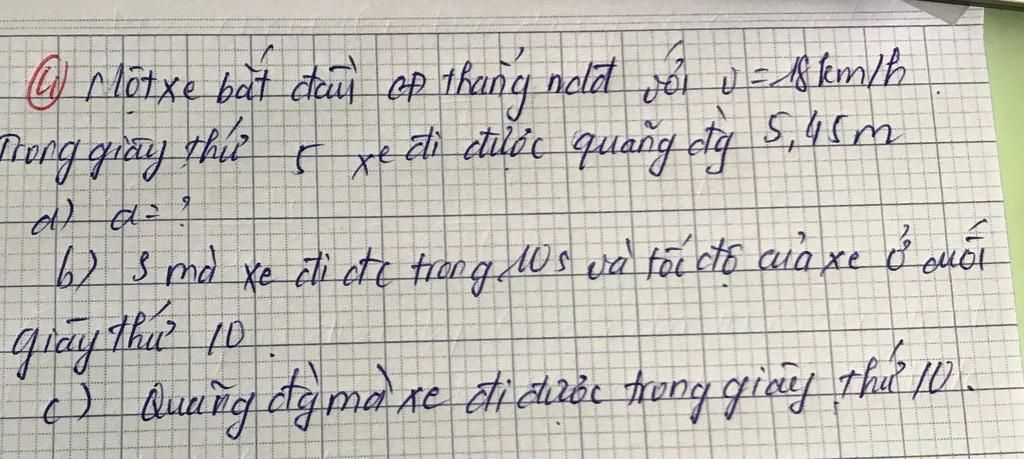 ④ Một xe bắt đầu cđ thẳng ndđ với v = 18 km/h
Trong giây thứ 5 xe đi được quãng đg 5,45m
a) a = ?
b) S mà xe đi đc trong 10s và tốc độ của xe ở cuối
giây thứ 10.
c) Quãng đg mà xe đi được trong giây thứ 10.